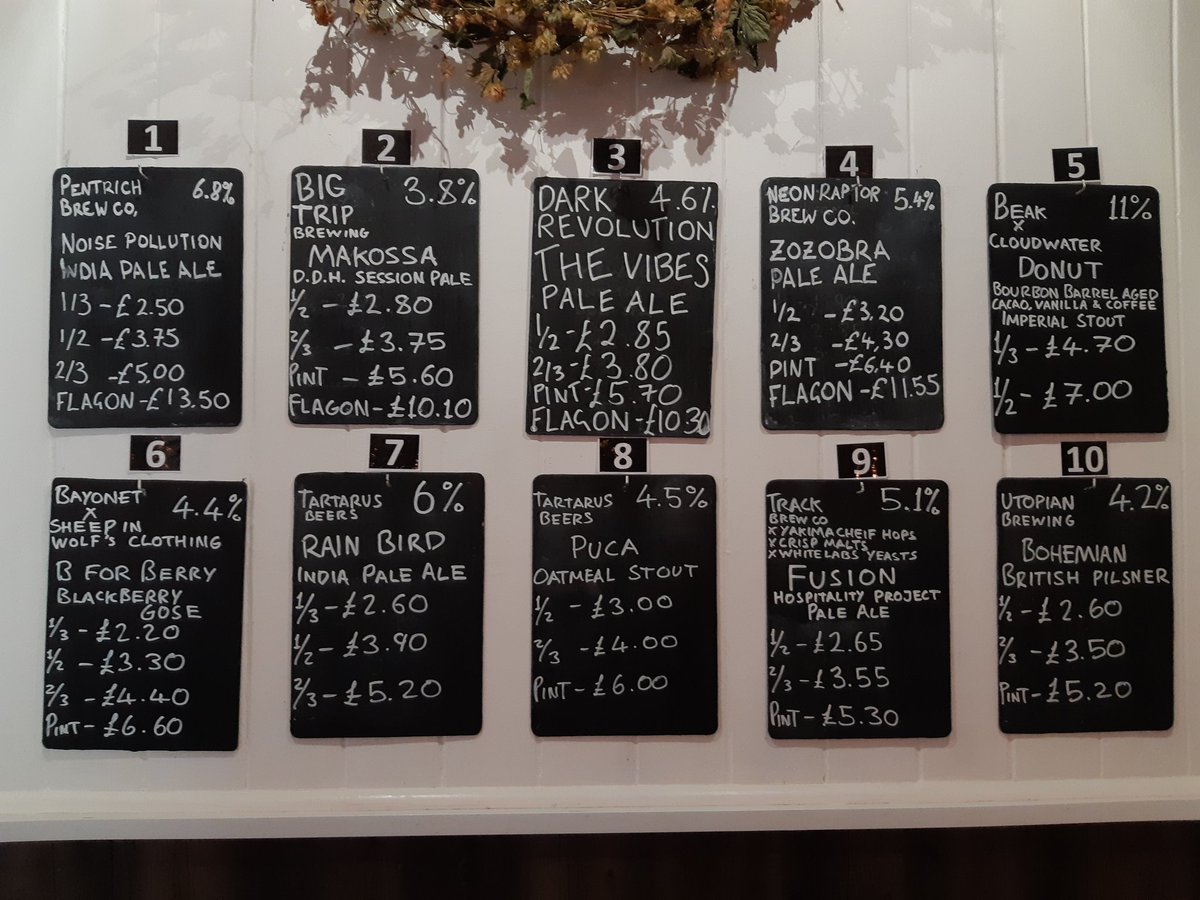 1
PENTRICH 6.8%
BREW CO,
NOISE POLLUTION
INDIA PALE ALE
1/3 - £2.50
1/2 - £3.75
2/3 - £5.00
FLAGON - £13.50
2
BIG 3.8%
TRIP
BREWING
MAKOSSA
D.D.H. SESSION PALE
1/2 - £2.80
2/3 - £3.75
PINT - £5.60
FLAGON - £10.10
3
DARK 4.6%
REVOLUTION
THE VIBES
PALE ALE
1/2 - £2.85
2/3 - £3.80
PINT - £5.70
FLAGON - £10.30
4
NEON RAPTOR 5.4%
BREW CO.
ZOZOBRA
PALE ALE
1/2 - £3.20
2/3 - £4,30
PINT - £6.40
FLAGON - £11.55
5
BEAK 11%
x
CLOUDWATER
DONUT
BOURBON BARREL AGED
CACAO, VANILLA & COFFEE
IMPERIAL STOUT
1/3 - £4.70
1/2 - £7.00
6
BAYONET 4.4%
x
SHEEP IN
WOLF'S CLOTHING
B FOR BERRY
BLACKBERRY
GOSE
1/3 - £2.20
1/2 - £3.30
2/3 - £4.40
PINT - £6.60
7
TARTARUS 6%
BEERS
RAIN BIRD
INDIA PALE ALE
1/3 - £2.60
1/2 - £3.90
2/3 - £5.20
8
TARTARUS 4.5%
BEERS
PUCA
OATMEAL STOUT
1/2 - £3.00
2/3 - £4.00
PINT - £6.00
9
TRACK 5.1%
BREW CO
x YAKIMA CHEIF HOPS
x CRISP MALTS
x WHITE LABS YEASTS
FUSION
HOSPITALITY PROJECT
PALE ALE
1/2 - £2.65
2/3 - £3.55
PINT - £5.30
10
UTOPIAN 4.2%
BREWING
BOHEMIAN
BRITISH PILSNER
1/2 - £2.60
2/3 - £3.50
PINT - £5.20